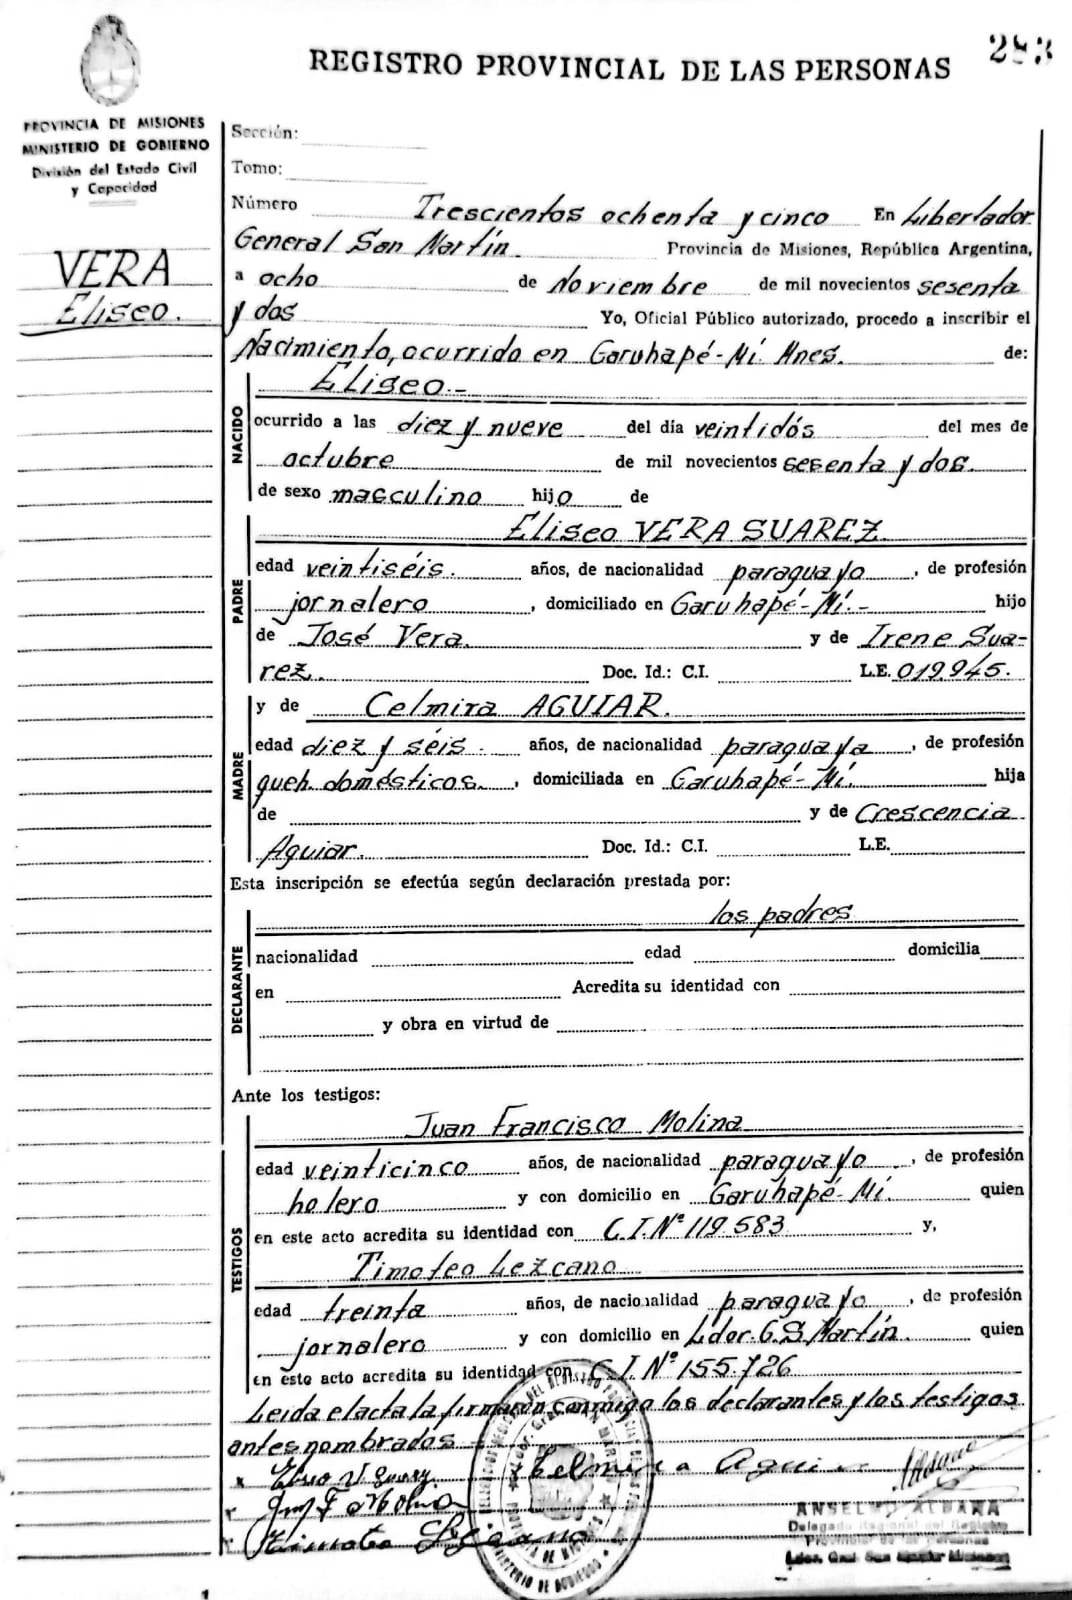 283
REGISTRO PROVINCIAL DE LAS PERSONAS
PROVINCIA DE MISIONES
MINISTERIO DE GOBIERNO
División del Estado Civil
y Capacidad
VERA
Eliseo.
Sección:
Tomo:
Número Trescientos ochenta y cinco En Libertador
General San Martín. Provincia de Misiones, República Argentina,
a ocho de Noviembre de mil novecientos sesenta
y dos Yo, Oficial Público autorizado, procedo a inscribir el
Nacimiento, ocurrido en Garuhapé-Mí. Mnes. de:
NACIDO
Eliseo.-
ocurrido a las diez y nueve del día veintidós del mes de
octubre de mil novecientos sesenta y dos.
de sexo masculino hijo de
PADRE
Eliseo VERA SUAREZ.
edad veintiséis. años, de nacionalidad paraguayo, de profesión
jornalero, domiciliado en Garuhapé-Mí.- hijo
de José Vera. y de Irene Sua-
rez. Doc. Id.: C.I. L.E. 019.945.
MADRE
y de Celmira AGUIAR.
edad diez y séis. años, de nacionalidad paraguaya, de profesión
queh. domésticos., domiciliada en Garuhapé-Mí. hija
de y de Crescencia
Aguiar. Doc. Id.: C.I. L.E.
Esta inscripción se efectúa según declaración prestada por:
DECLARANTE
los padres
nacionalidad edad domicilia
en Acredita su identidad con
y obra en virtud de
Ante los testigos:
TESTIGOS
Juan Francisco Molina
edad veinticinco años, de nacionalidad paraguayo, de profesión
holero y con domicilio en Garuhapé-Mí. quien
en este acto acredita su identidad con C.I.Nº 119.583 y,
Timoteo Lezcano
edad treinta años, de nacionalidad paraguayo, de profesión
jornalero y con domicilio en Ldor. G. S. Martín. quien
en este acto acredita su identidad con C.I.Nº 155.726
Leída el acta la firmarón conmigo los declarantes y los testigos
antes nombrados
x
Celmira Aguiar
ANSELMO ALDANA
Delegado Regional del Registro
Provincial de las personas
Ldor. Gral. San Martín Misiones
MINISTERIO DE GOBIERNO
1